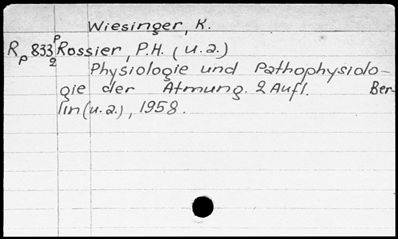 Wiesinger, K.
Rp 833 p/2 Rossier, P.H. (u.a.)
Physiologie und Pathophysiolo-
gie der Atmung. 2 Aufl. Ber-
lin (u.a.), 1958.